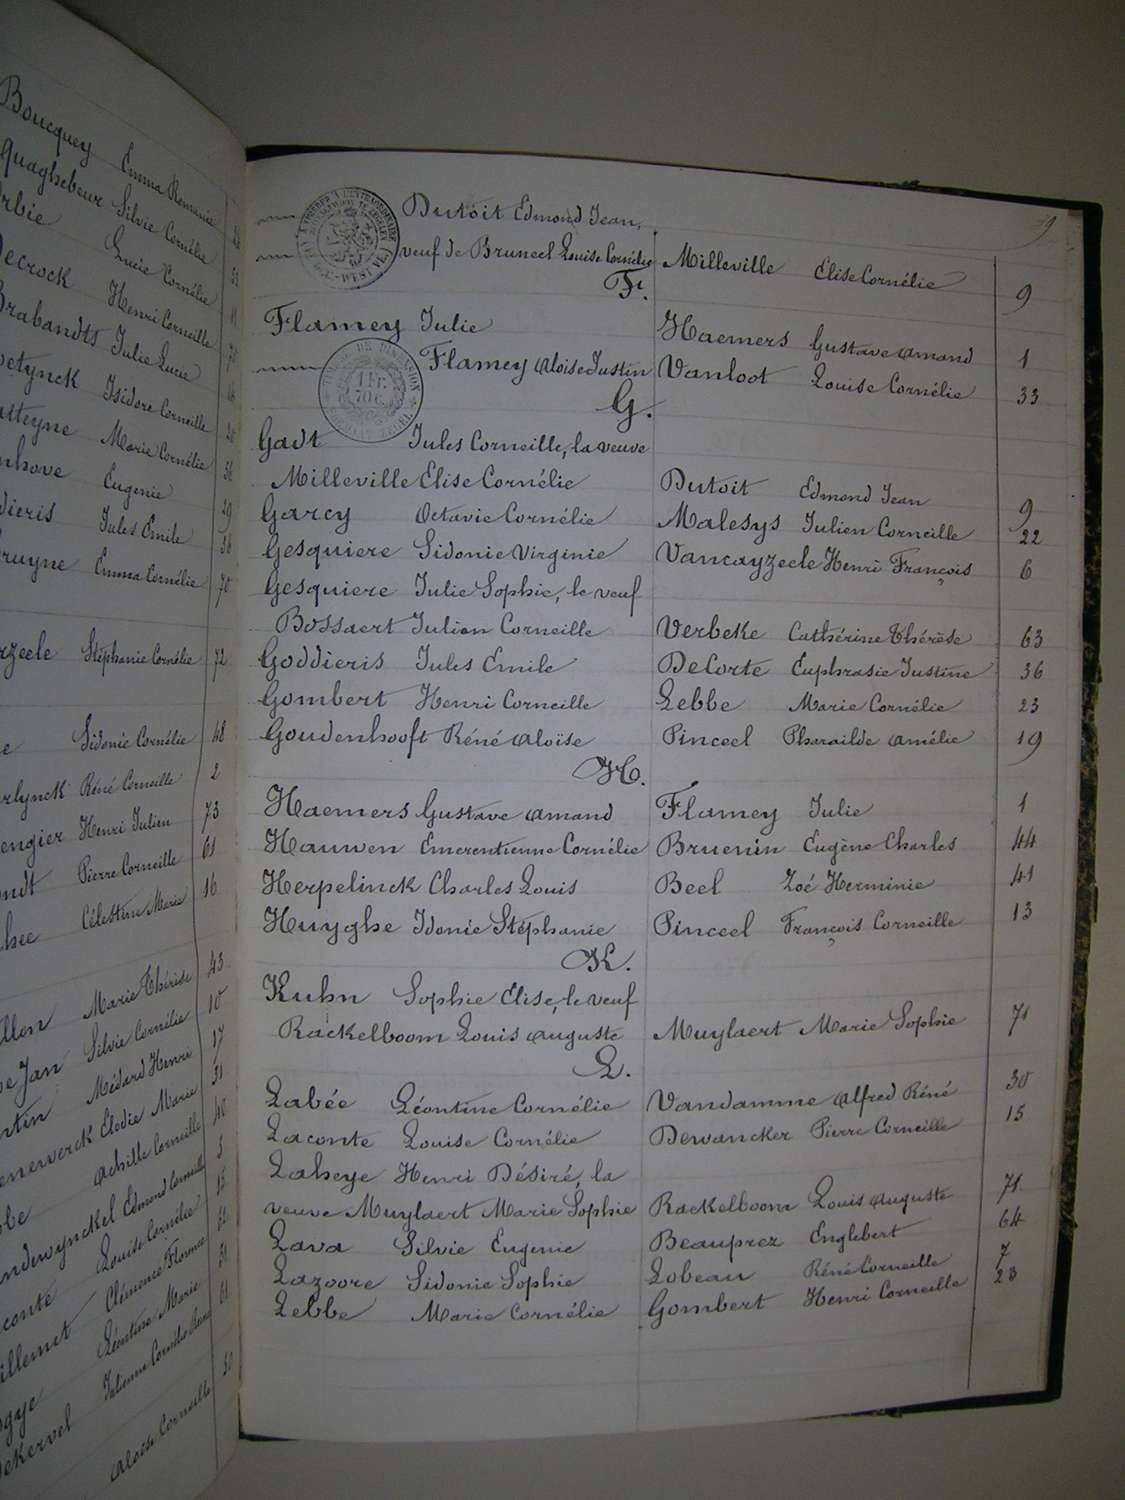 Boucquey Emma Romanie
Quaghebeur Silvie Cornélie
Lucie Cornélie
Decrock Henri Corneille
Brabandts Julie Lucie
Isidore Corneille
Marie Cornélie
Eugenie
Jules Emile
Emma Cornélie 70
Stéphanie Cornélie 72
Sidonie Cornélie 48
Réné Corneille 2
Henri Julien 73
Pierre Corneille 61
Célestin Marie 16
Marie Thérèse 43
Silvie Cornélie 10
Médard Henri 17
Elodie Marie 31
Achille Corneille 40
Edmond Corneille
Louise Cornélie
Clémence Florence
Léontine Marie
Aloïse Corneille 50
9
Dutoit Edmond Jean,
veuf de Bruneel Louise Cornélie Milleville Elise Cornélie 9
F.
Flamey Julie Haemers Gustave Amand 1
Flamey Aloise Justin Vanloot Louise Cornélie 33
G.
Gadt Jules Corneille, la veuve
Milleville Elise Cornélie Dutoit Edmond Jean 9
Garcy Octavie Cornélie Malesys Julien Corneille 22
Gesquiere Sidonie Virginie Vancayzeele Henri François 6
Gesquiere Julie Sophie, le veuf
Bossaert Julien Corneille Verbeke Cathérine Thérèse 63
Goddieris Jules Emile DeCorte Euphrasie Justine 36
Gombert Henri Corneille Lebbe Marie Cornélie 23
Goudenhooft Réné Aloïse Pinceel Pharaïlde Amélie 19
H.
Haemers Gustave Amand Flamey Julie 1
Hauwen Emerentienne Cornélie Bruenin Eugène Charles 44
Herpelinck Charles Louis Beel Zoé Herminie 41
Huyghe Idonie Stéphanie Pinceel François Corneille 13
K.
Kuhn Sophie Elise, le veuf
Rackelboom Louis Auguste Muylaert Marie Sophie 71
L.
Labée Léontine Cornélie Vandamme Alfred Réné 30
Laconte Louise Cornélie Dewancker Pierre Corneille 15
Laheye Henri Désiré, la
veuve Muylaert Marie Sophie Rackelboom Louis Auguste 71
Lava Silvie Eugenie Beauprez Englebert 64
Lazoore Sidonie Sophie Lobeau Réné Corneille 7
Lebbe Marie Cornélie Gombert Henri Corneille 23